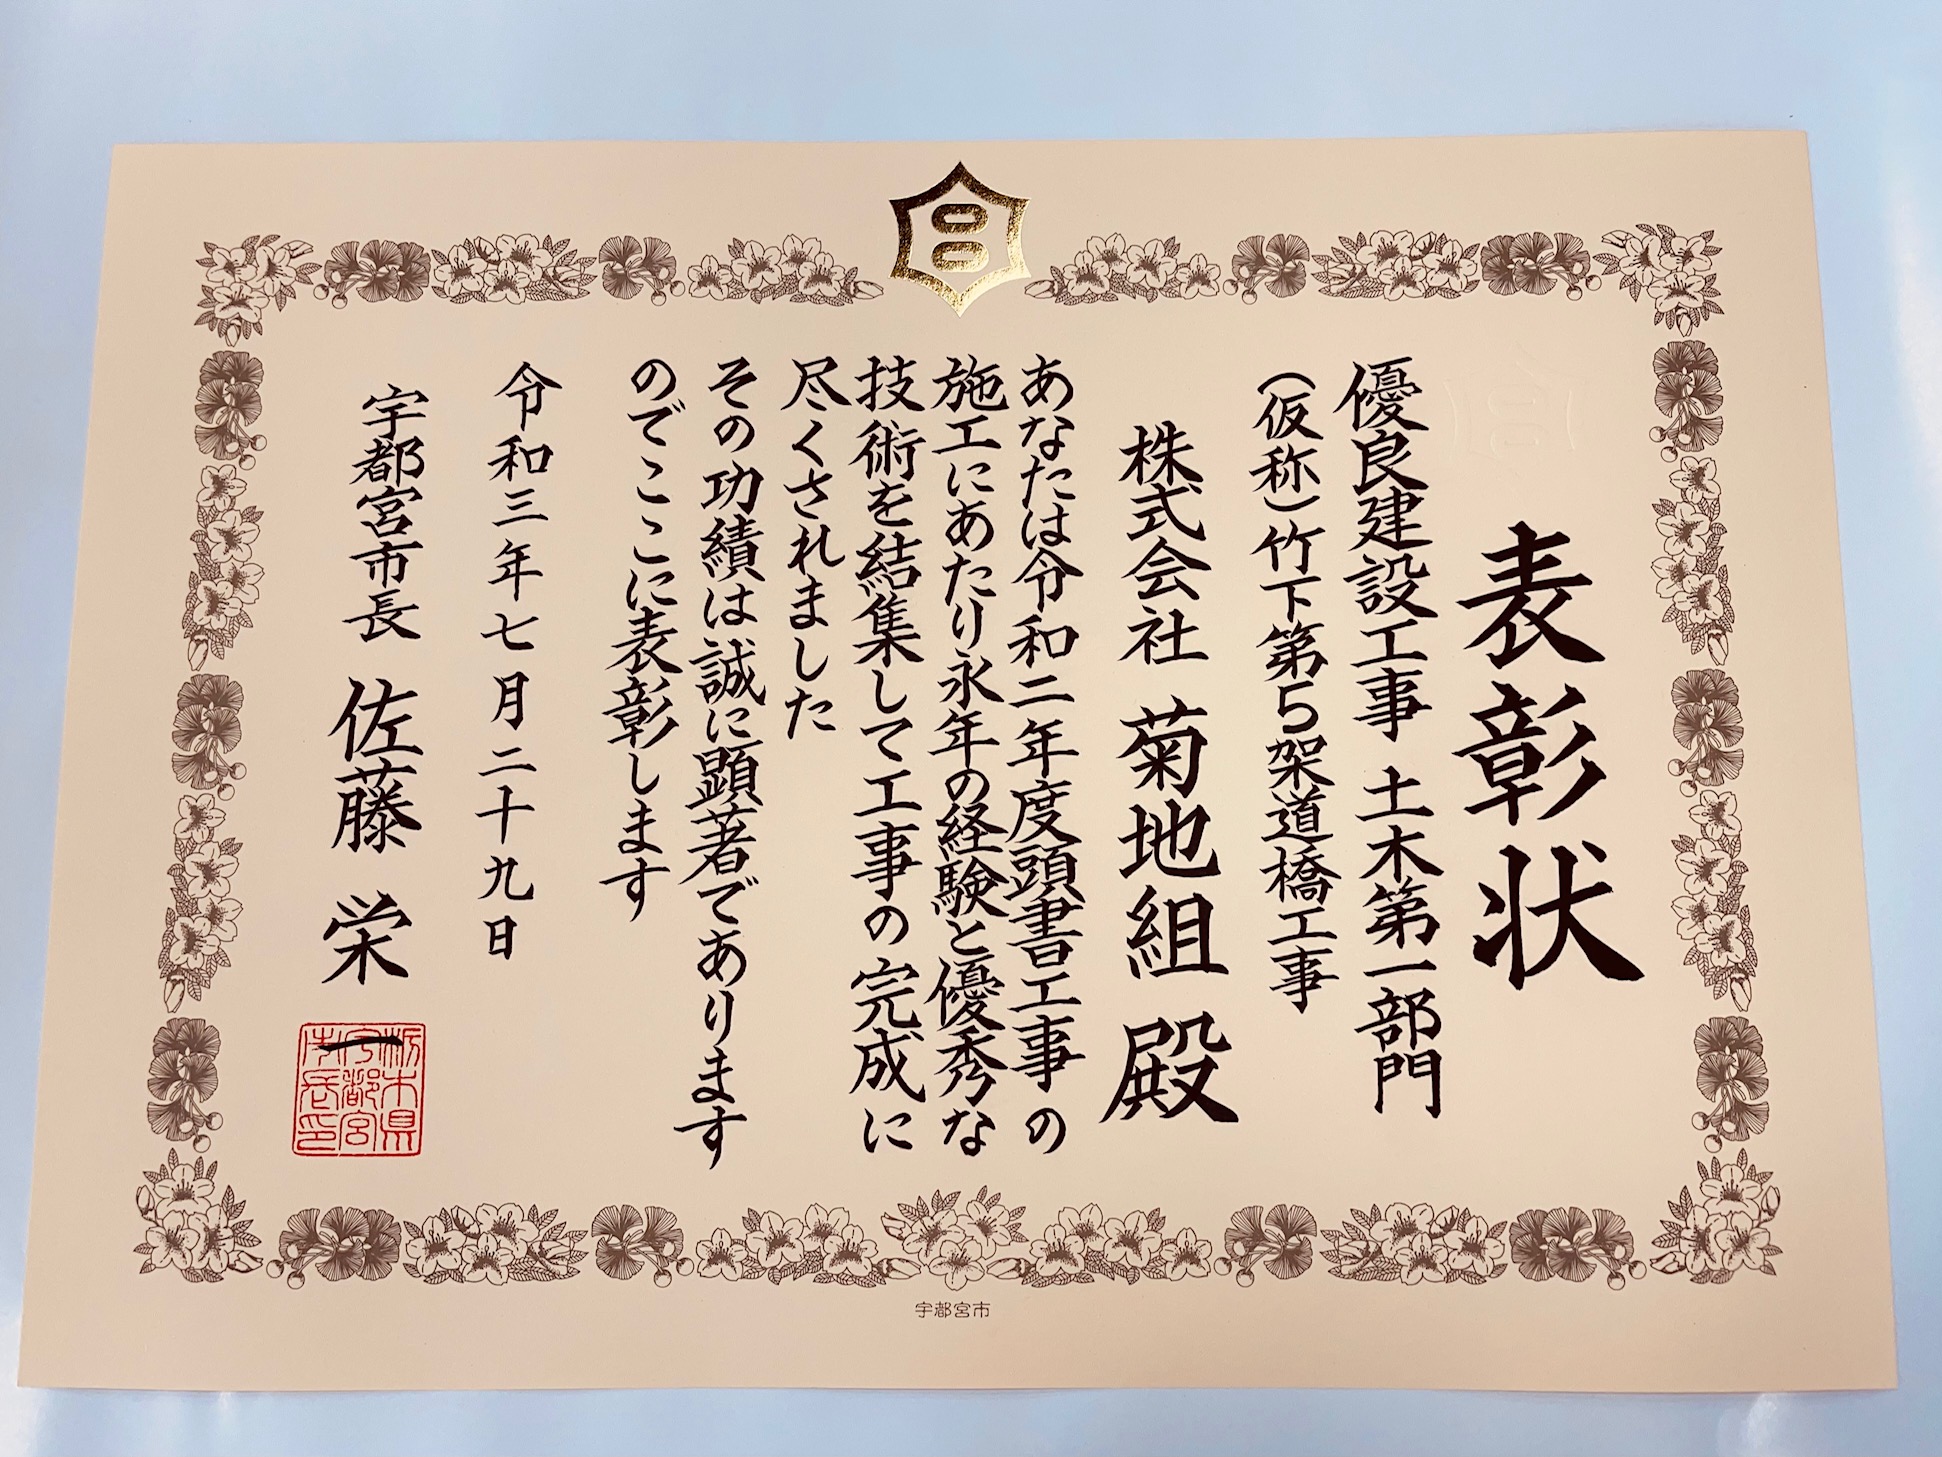 表彰状
優良建設工事 土木第一部門
（仮称）竹下第5架道橋工事
株式会社 菊地組 殿
あなたは令和二年度頭書工事の
施工にあたり永年の経験と優秀な
技術を結集して工事の完成に
尽くされました
その功績は誠に顕著であります
のでここに表彰します
令和三年七月二十九日
宇都宮市長 佐藤 栄一
栃木県
宇都宮
市長印
宇都宮市